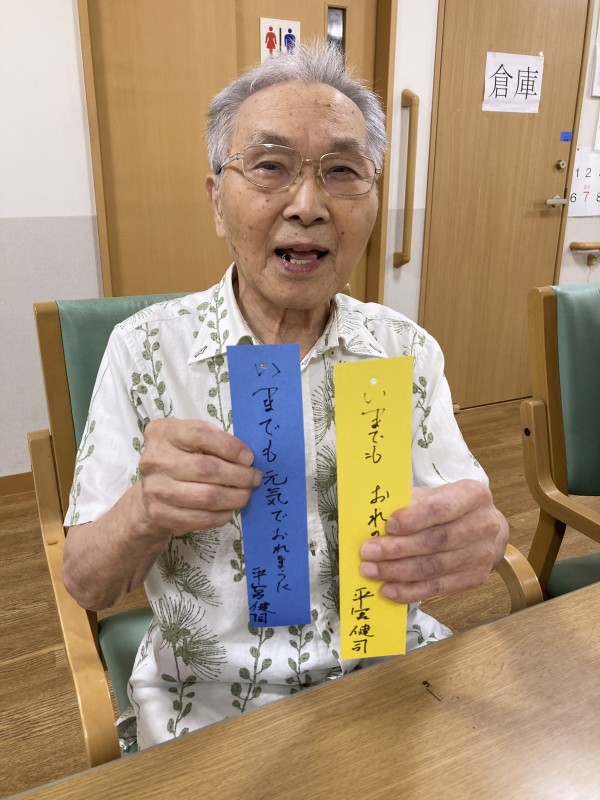 倉庫
1 2
6 7 8
いまでも元気でおれますように
平宮健司
いまでも おれ
平宮健司